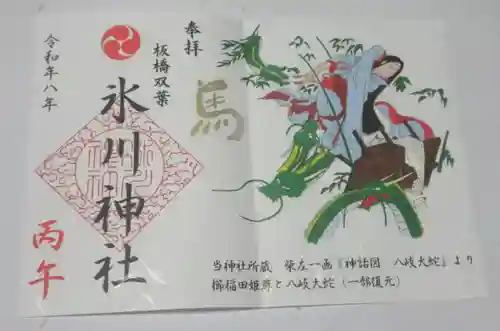 奉拝
板橋双葉
氷川神社
馬
令和八年
丙午
当神社所蔵 柴左一画『神話図 八岐大蛇』より
櫛稲田姫尊と八岐大蛇(一部復元)